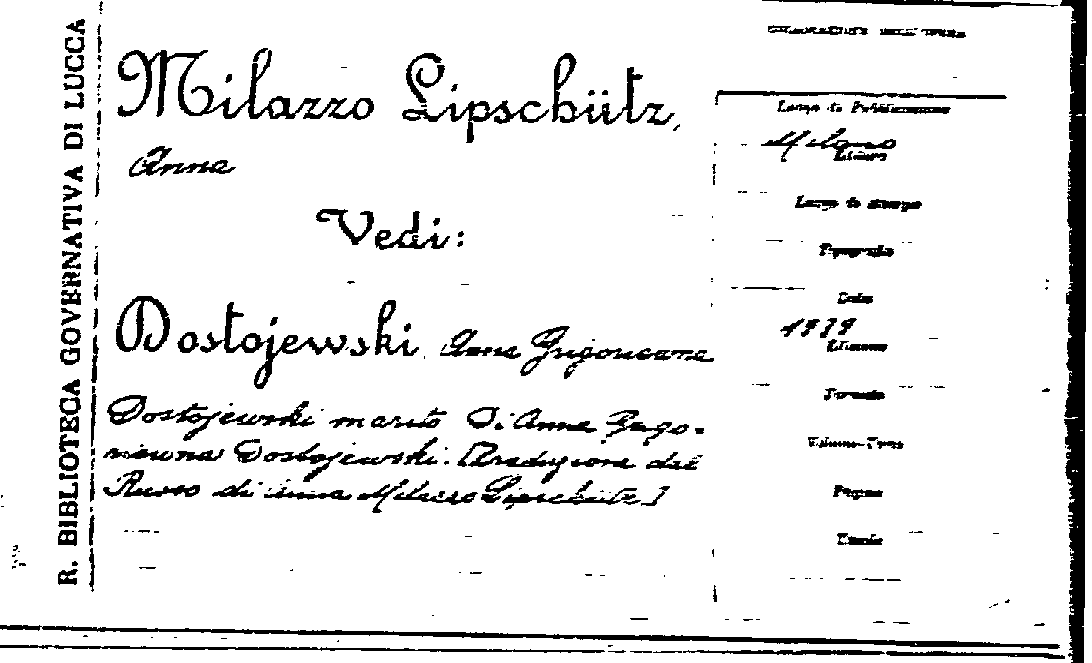 R. BIBLIOTECA GOVERNATIVA DI LUCCA
Milazzo Lipschütz,
Anna
Vedi:
Dostojewski Anna
Dostojewski marito di Anna
Dostojewski. [Traduzione dal
Russo di Anna Milazzo Lipschütz]
Luogo di Pubblicazione
Milano
Editore
Luogo di stampa
Tipografia
Data
Edizione
Formato
Volume-Tomo
Pagine
Tavole